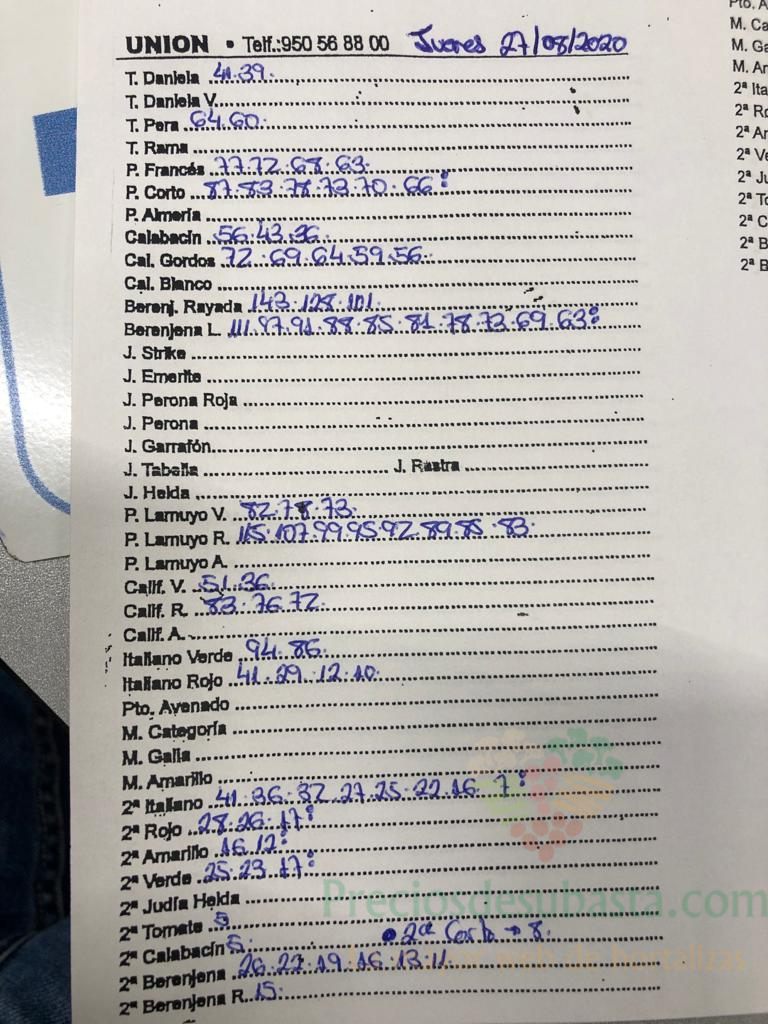 UNION • Telf.:950 56 88 00 Jueves 27/08/2020
T. Daniela 41.39.
T. Daniela V.
T. Pera 64.60.
T. Rama
P. Francés 77.72.68.63.
P. Corto 87.83.78.73.70.66:
P. Almería
Calabacín 56.43.36.
Cal. Gordos 72.69.64.59.56.
Cal. Blanco
Berenj. Rayada 143.128.101.
Berenjena L. 111.97.91.88.85.81.78.73.69.63:
J. Strike
J. Emerite
J. Perona Roja
J. Perona
J. Garrafón
J. Tabella J. Rastra
J. Helda
P. Lamuyo V. 82.78.73.
P. Lamuyo R. 115.107.99.95.92.89.85.83.
P. Lamuyo A.
Calif. V. 51.36.
Calif. R. 83.76.72.
Calif. A.
Italiano Verde 94.86.
Italiano Rojo 41.29.12.10.
Pto. Avenado
M. Categoría
M. Galia
M. Amarillo
2ª Italiano 41.36.32.27.25.22.16.7:
2ª Rojo 28.26.17:
2ª Amarillo 16.12:
2ª Verde 25.23.17:
2ª Judía Helda
Preciosdesubasta.com
2ª Tomate 5
2ª Calabacín 5. • 2ª Corto → 8.
2ª Berenjena 26.22.19.16.13.11.
web de hortalizas
2ª Berenjena R. 15.
Pto. A
M. Ca
M. Ga
M. Am
2ª Ita
2ª Ro
2ª Am
2ª Ve
2ª Ju
2ª To
2ª C
2ª B
2ª B